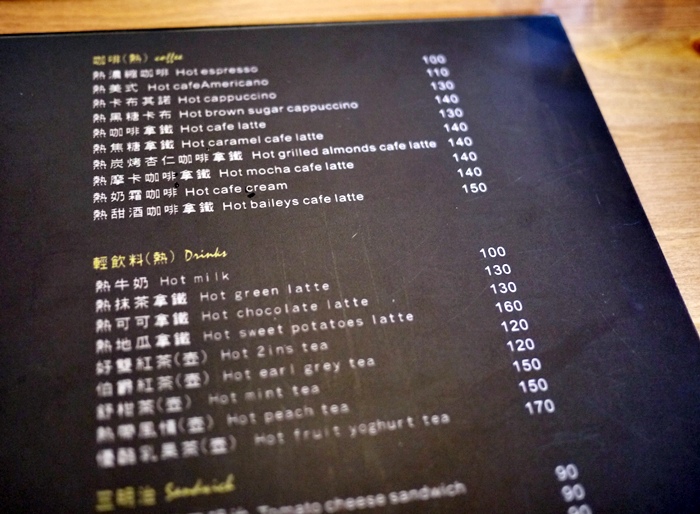 咖啡(熱) coffee
熱濃縮咖啡 Hot espresso 100
熱美式 Hot cafeAmericano 110
熱卡布其諾 Hot cappuccino 130
熱黑糖卡布 Hot brown sugar cappuccino 140
熱咖啡拿鐵 Hot cafe latte 130
熱焦糖拿鐵 Hot caramel cafe latte 140
熱炭烤杏仁咖啡拿鐵 Hot grilled almonds cafe latte 140
熱摩卡咖啡拿鐵 Hot mocha cafe latte 140
熱奶霜咖啡 Hot cafe cream 140
熱甜酒咖啡拿鐵 Hot baileys cafe latte 150
輕飲料(熱) Drinks
熱牛奶 Hot milk 100
熱抹茶拿鐵 Hot green latte 130
熱可可拿鐵 Hot chocolate latte 130
熱地瓜拿鐵 Hot sweet potatoes latte 160
好雙紅茶(壺) Hot 2ins tea 120
伯爵紅茶(壺) Hot earl grey tea 120
舒柑茶(壺) Hot mint tea 150
熱帶風情(壺) Hot peach tea 150
優酪乳果茶(壺) Hot fruit yoghurt tea 170
三明治 Sandwich
Tomato cheese sandwich 90
90
90